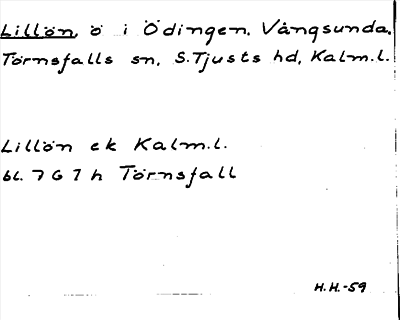 Lillön, ö i Ödingen, Vångsunda,
Törnsfalls sn, S.Tjusts hd, Kalm.l.
Lillön ek Kalm.l.
bl. 7 G 7 h Törnsfall
H.H.-59